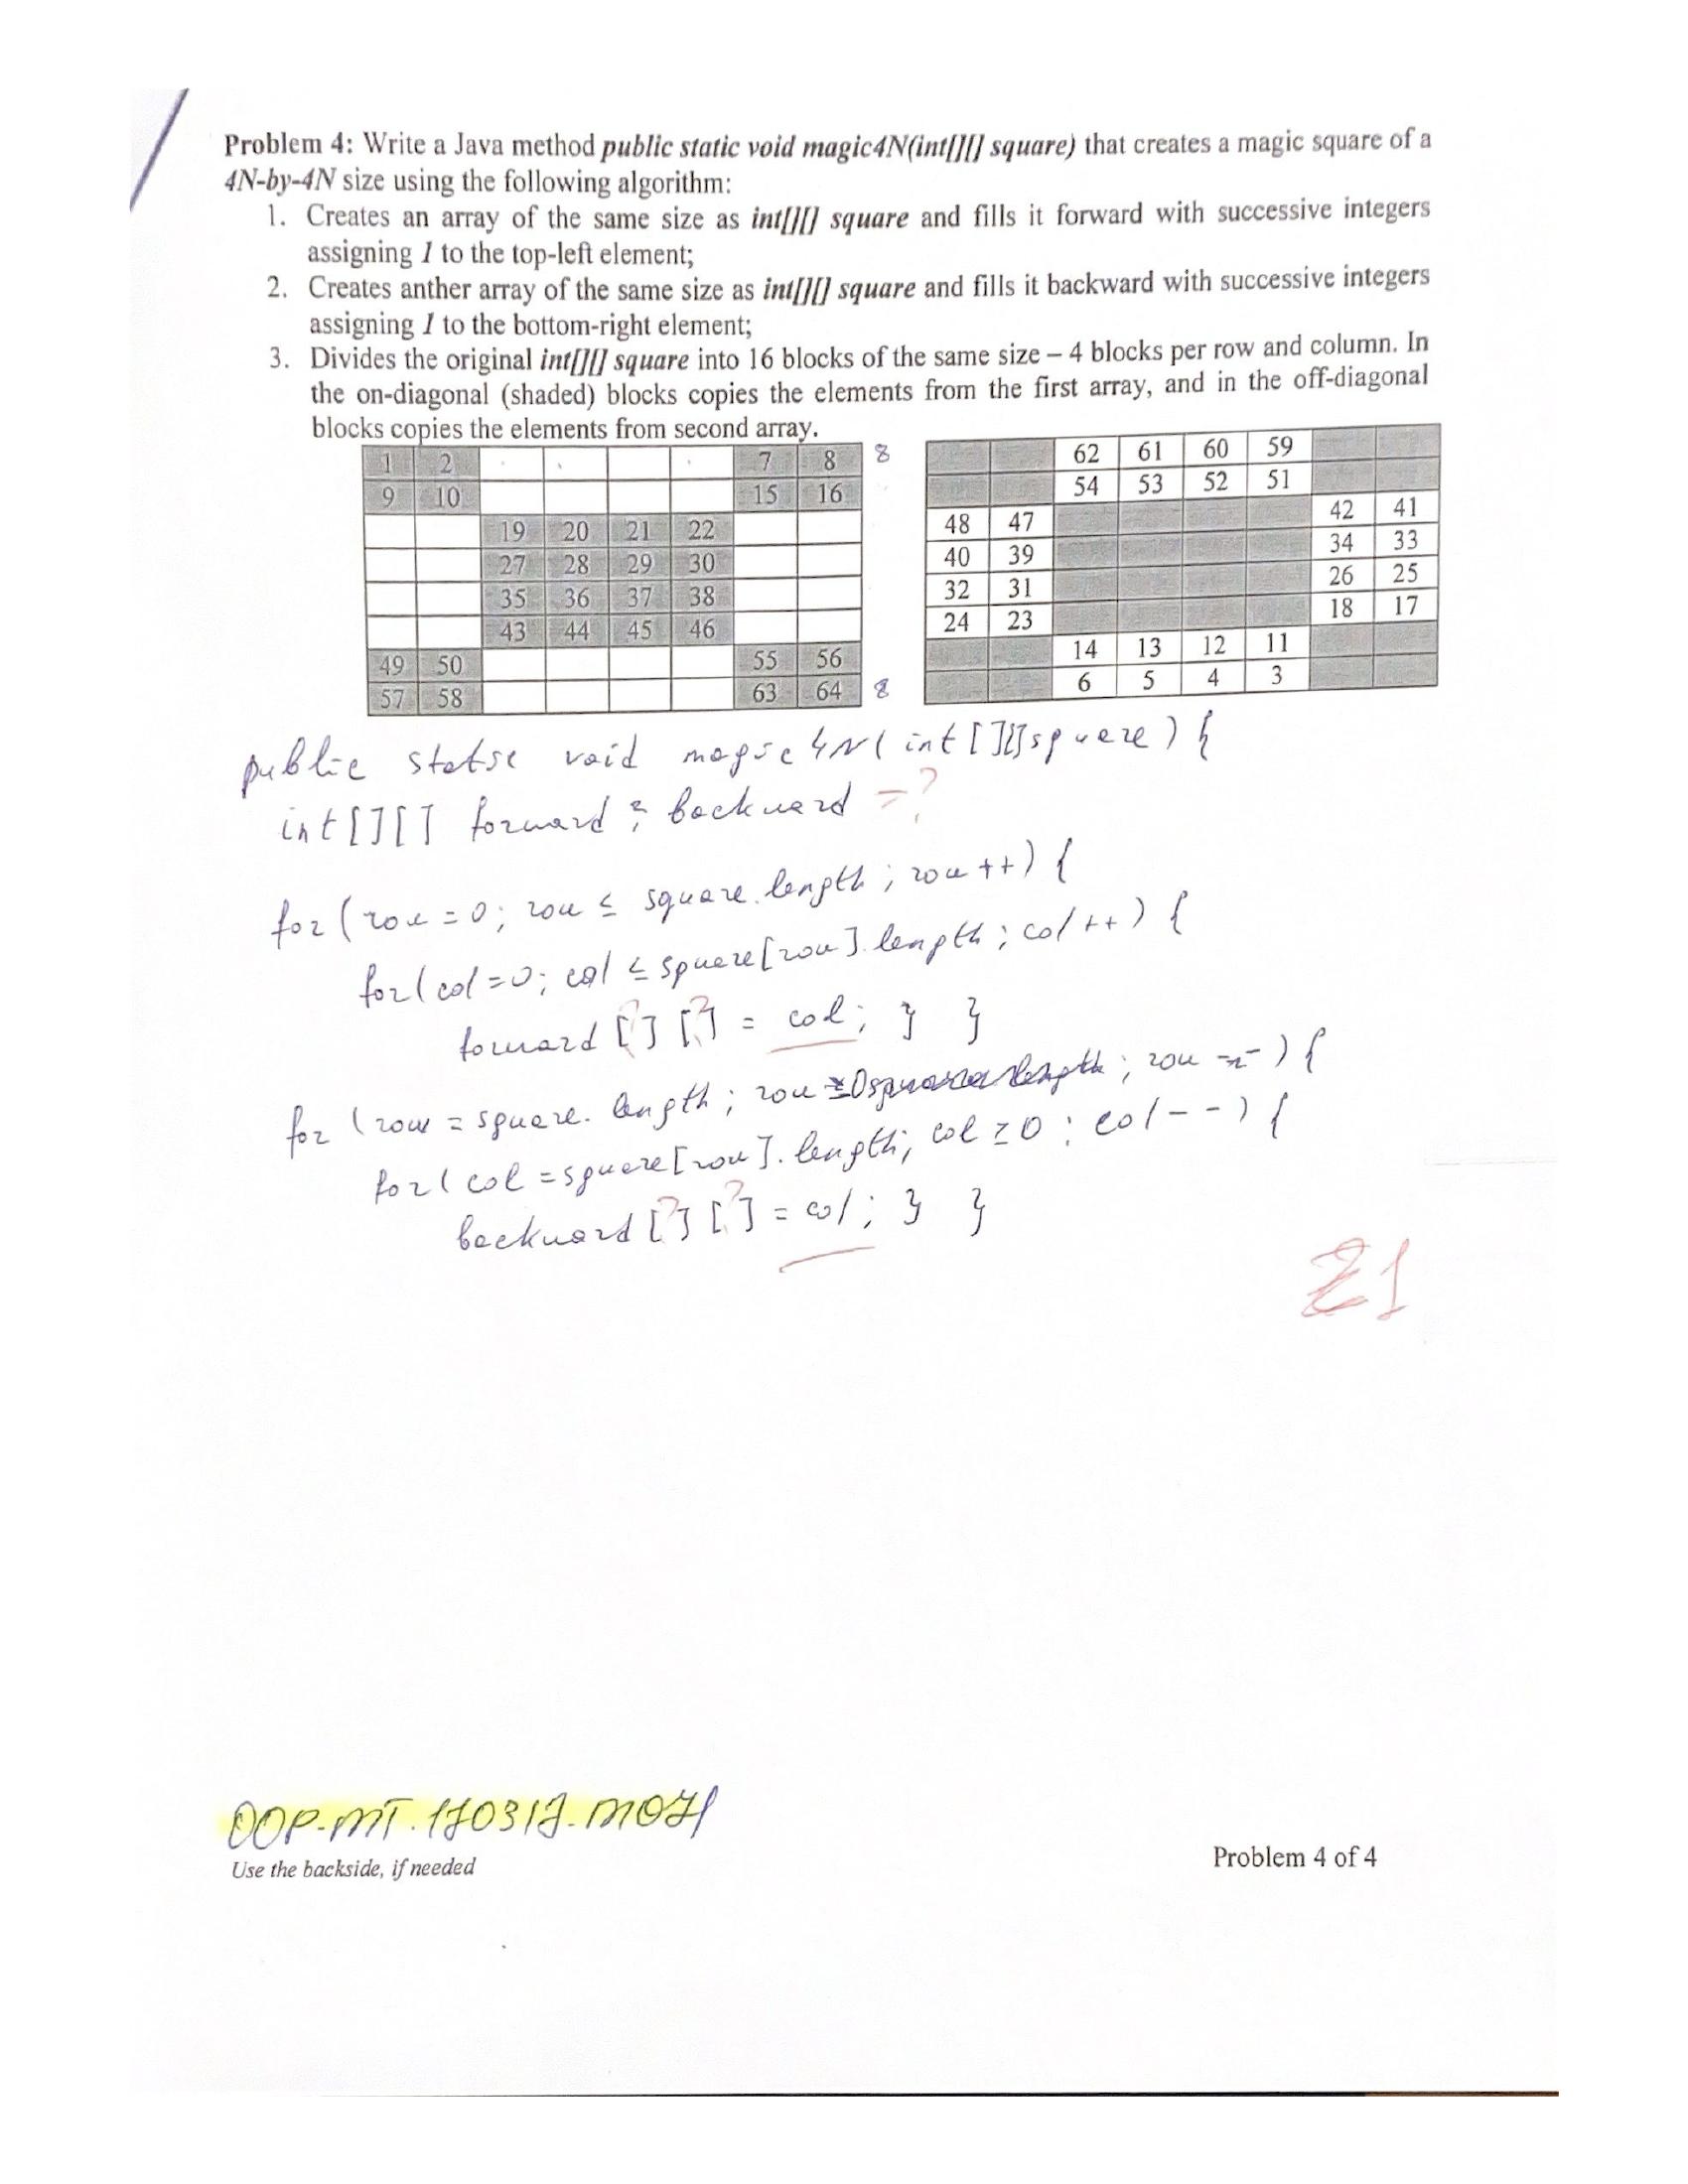 Problem 4: Write a Java method public static void magic4N(int[][] square) that creates a magic square of a
4N-by-4N size using the following algorithm:
1. Creates an array of the same size as int[][] square and fills it forward with successive integers
assigning 1 to the top-left element;
2. Creates anther array of the same size as int[][] square and fills it backward with successive integers
assigning 1 to the bottom-right element;
3. Divides the original int[][] square into 16 blocks of the same size – 4 blocks per row and column. In
the on-diagonal (shaded) blocks copies the elements from the first array, and in the off-diagonal
blocks copies the elements from second array.
1 2 7 8 8
9 10 15 16
19 20 21 22
27 28 29 30
35 36 37 38
43 44 45 46
49 50 55 56
57 58 63 64 8
62 61 60 59
54 53 52 51
48 47 42 41
40 39 34 33
32 31 26 25
24 23 18 17
14 13 12 11
6 5 4 3
public static void magic4N(int[][]square) {
int[][] forward ; backward =?
for (row = 0; row ≤ square.length ; row ++) {
for( col = 0; col ≤ square[row].length ; col ++) {
forward [?] [?] = col; } }
for (row = square. length ; row ≥ 0 ; row --) {
for( col = square[row]. length; col ≥ 0 ; col --) {
backward [?] [?] = col; } }
21
OOP-MT.170317.M071
Use the backside, if needed
Problem 4 of 4